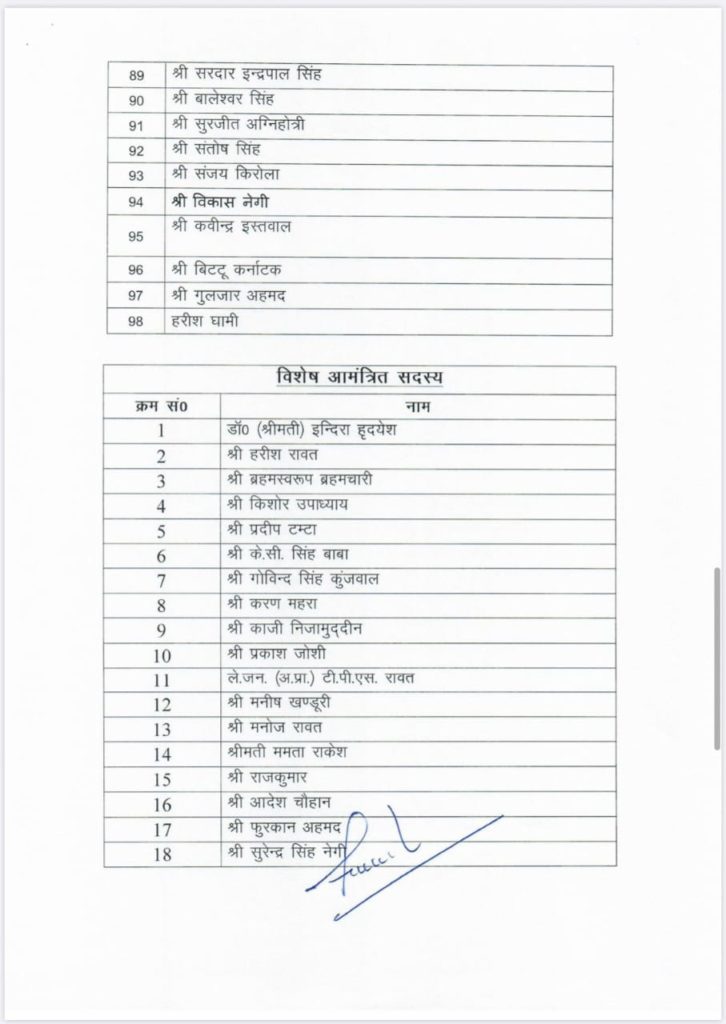 89 श्री सरदार इन्द्रपाल सिंह
90 श्री बालेश्वर सिंह
91 श्री सुरजीत अग्निहोत्री
92 श्री संतोष सिंह
93 श्री संजय किरोला
94 श्री विकास नेगी
95 श्री कवीन्द्र इस्तवाल
96 श्री बिटटू कर्नाटक
97 श्री गुलजार अहमद
98 हरीश घामी
विशेष आमंत्रित सदस्य
क्रम सं0 नाम
1 डॉ0 (श्रीमती) इन्दिरा हृदयेश
2 श्री हरीश रावत
3 श्री ब्रहमस्वरूप ब्रहमचारी
4 श्री किशोर उपाध्याय
5 श्री प्रदीप टम्टा
6 श्री के.सी. सिंह बाबा
7 श्री गोविन्द सिंह कुंजवाल
8 श्री करण महरा
9 श्री काजी निजामुद्दीन
10 श्री प्रकाश जोशी
11 ले.जन. (अ.प्रा.) टी.पी.एस. रावत
12 श्री मनीष खण्डूरी
13 श्री मनोज रावत
14 श्रीमती ममता राकेश
15 श्री राजकुमार
16 श्री आदेश चौहान
17 श्री फुरकान अहमद
18 श्री सुरेन्द्र सिंह नेगी